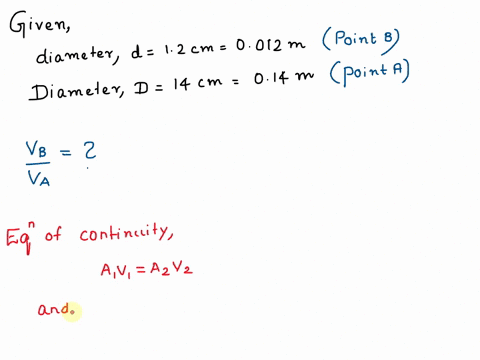 Given,
diameter, d = 1.2 cm = 0.012 m (Point B)
Diameter, D = 14 cm = 0.14 m (Point A)
V_B / V_A = ?
Eqⁿ of continuity,
A₁V₁ = A₂V₂
and